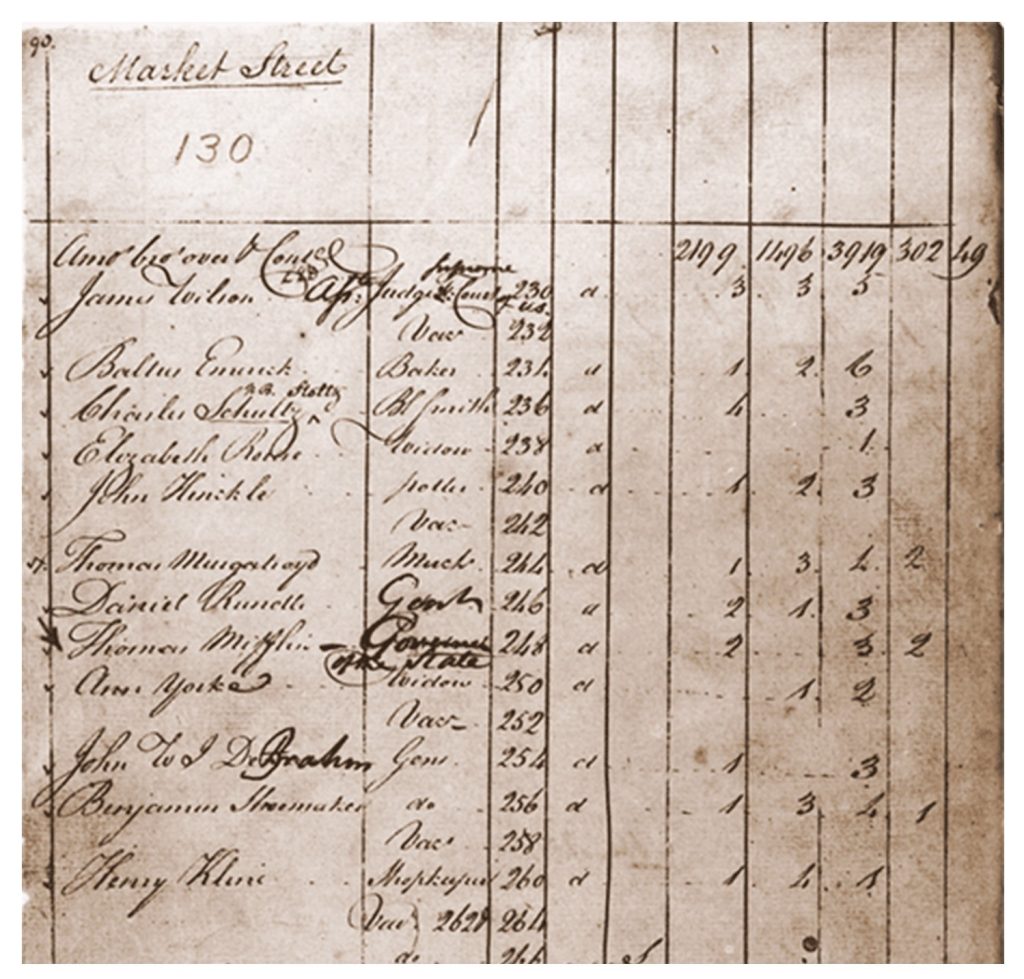 90.
Market Street
130
Amo bro over 2199 1496 3919 302 49
James Wilson Judge Supreme Court of U.S. 230 d 3 3 5
Vac 232
Baltus Emrick Baker 234 d 1 2 6
Charles Schultz Bl Smith 236 d 4 3
Elizabeth Widow 238 d 1
John Hinckle potter 240 d 1 2 3
Vac 242
Thomas Murgatroyd Merch 244 d 1 3 4 2
Daniel Rundle Gent 246 d 2 1 3
Thomas Mifflin Governor of the State 248 d 2 3 2
Ann Yorke Widow 250 d 1 2
Vac 252
John W I De Brahm Gen 254 d 1 3
Benjamin Shoemaker do 256 d 1 3 4 1
Vac 258
Henry Kline Shopkeeper 260 d 1 4 1
Vac 262 264
do 266